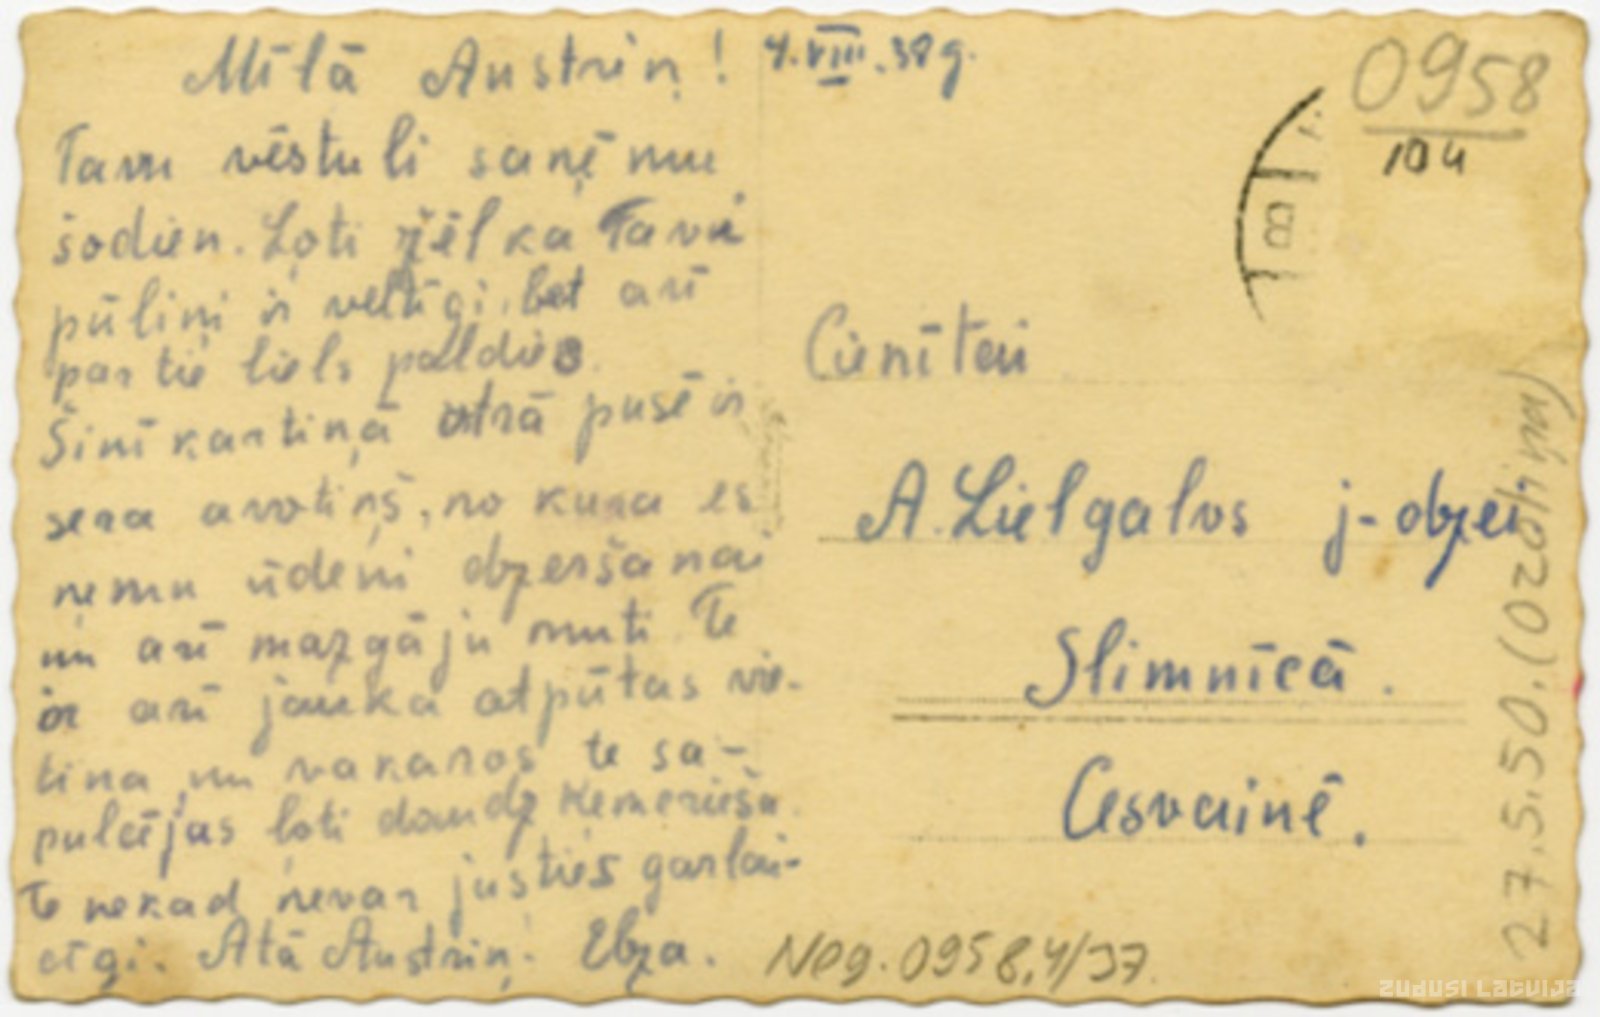 Mīļā Austriņ! 4.VIII.38g.
Tavu vēstuli saņēmu
šodien. Ļoti žēl ka Tavi
pūliņi ir veltīgi, bet arī
par tie liels paldies.
Šinī kartiņā otrā pusē ir
sēra avotiņš, no kura es
ņemu ūdeni dzeršanai
un arī mazgāju muti. Te
ir arī jauka atpūtas vie-
tiņa un vakaros te sa-
pulcējas ļoti daudz ķemeriešu.
Te nekad nevar justies garlai-
cīgi. Atā Austriņ. Elza.
Cienītei
A. Lielgalvs j-dzei
Slimnīcā.
Cesvainē.
0958
104
Neg. 0958,4/37
27.5.50. (Ozoliņa)
ZUDUSI LATVIJA